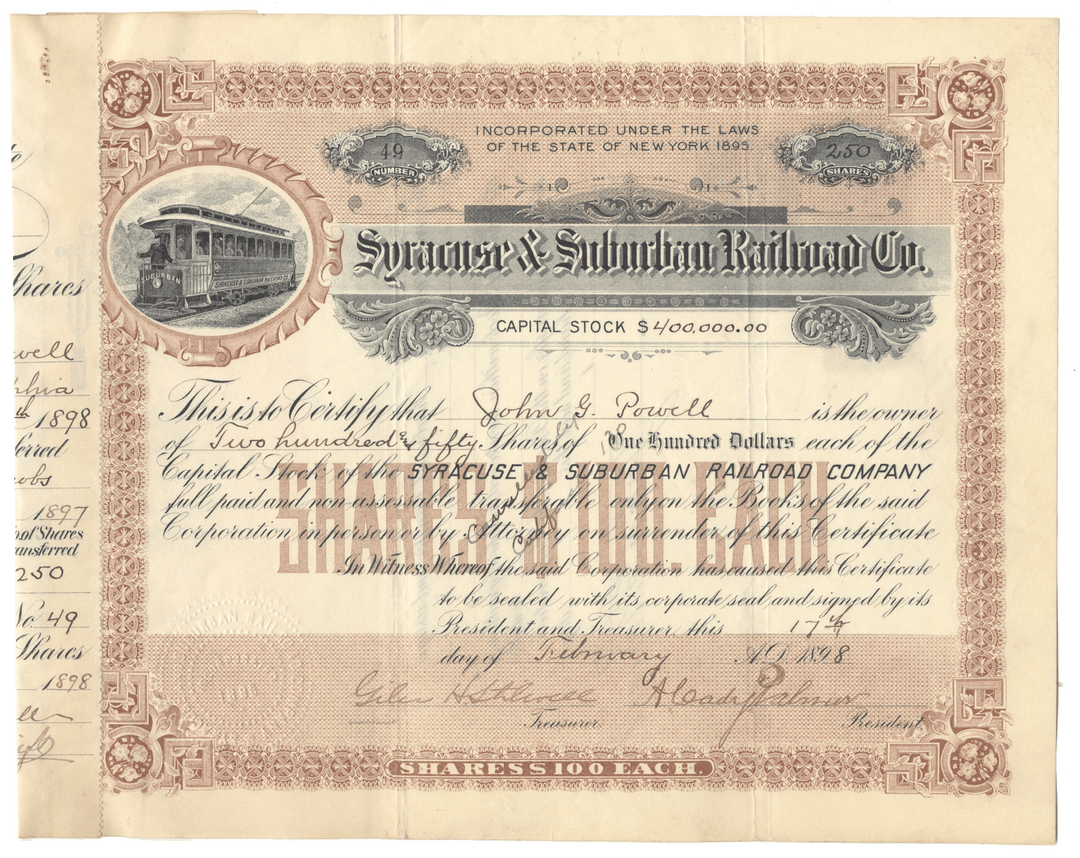 INCORPORATED UNDER THE LAWS
OF THE STATE OF NEW YORK 1895
49
NUMBER
250
SHARES
SUBURBAN
SYRACUSE & SUBURBAN RAILROAD CO.
Syracuse & Suburban Railroad Co.
CAPITAL STOCK $400,000.00
This is to Certify that John G. Powell is the owner
of Two hundred & fifty Shares of One Hundred Dollars each of the
Capital Stock of the SYRACUSE & SUBURBAN RAILROAD COMPANY
full paid and non assessable transferable only on the Books of the said
Corporation in person or by Attorney on surrender of this Certificate
SHARES $100. EACH
In Witness Whereof, the said Corporation has caused this Certificate
to be sealed with its corporate seal and signed by its
President and Treasurer, this 17th
day of February A.D. 1898
Giles H Stilwell A Cady Palmer
Treasurer. President.
SHARES $100 EACH.
Shares
well
phia
th 1898
ferred
obs
1897
o. of Shares
ansferred
250
No 49
Shares
1898